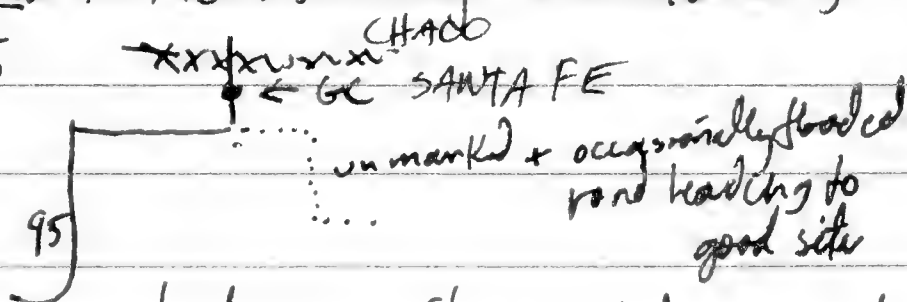 CHACO
xxxxxxx
← GC SANTA FE
unmarked + occassionally flooded
road leading to
good site
95